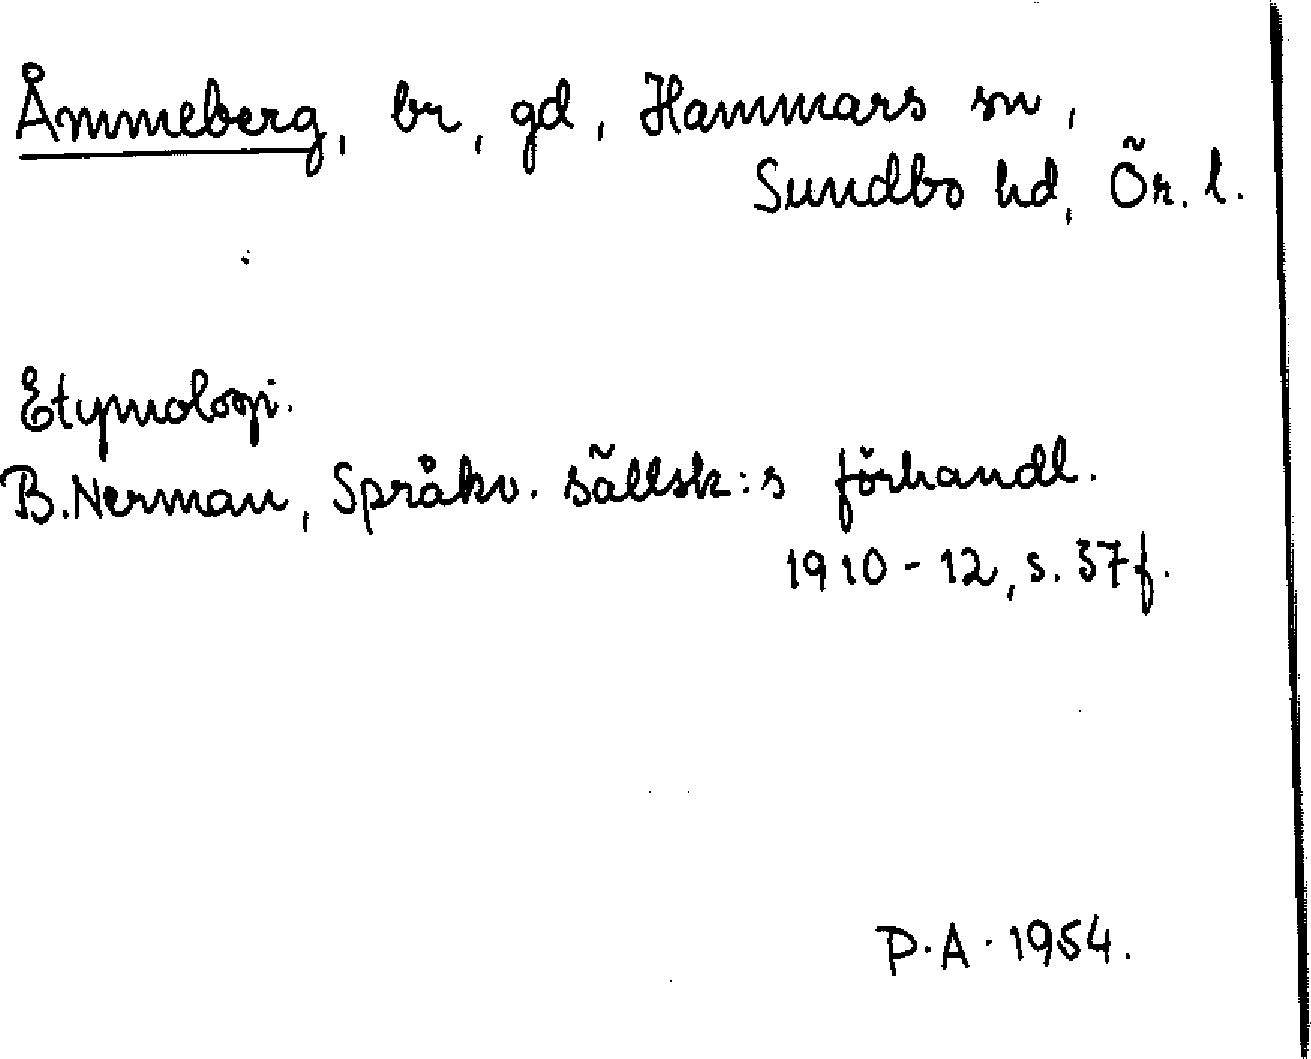 Åmmeberg, br, gd, Hammars sn,
Sundbo hd, Ör. l.
Etymologi.
B. Nerman, Språkv. sällsk:s förhandl.
1910-12, s. 37 f.
P. A. 1954.